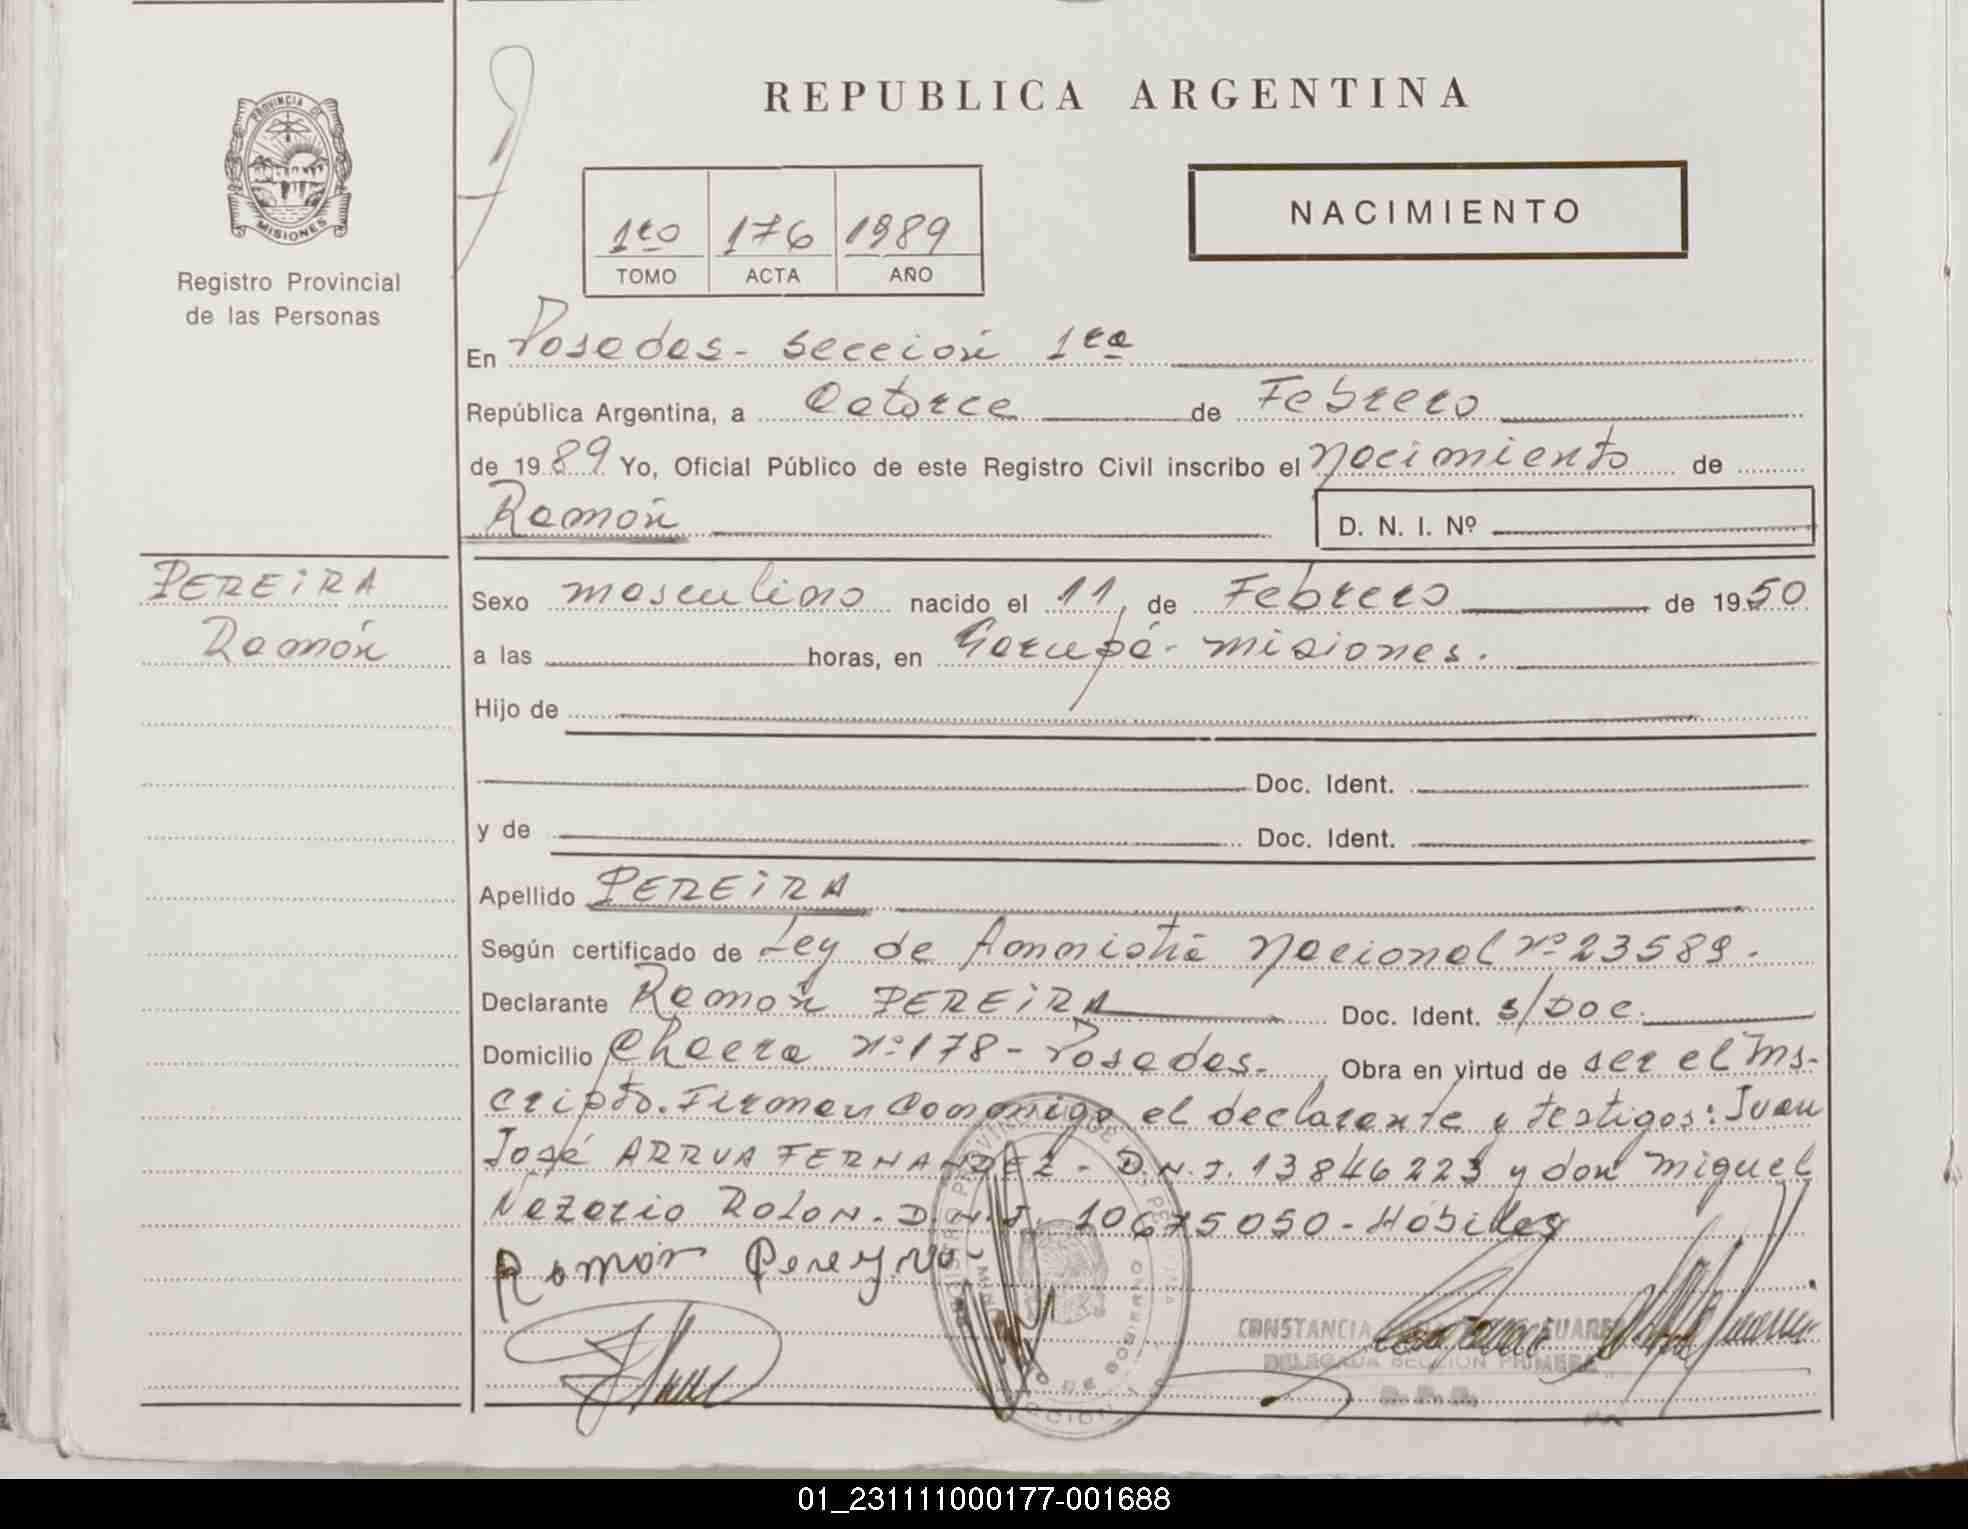 REPUBLICA ARGENTINA
PROVINCIA DE
MISIONES
Registro Provincial
de las Personas
1ro 176 1989
TOMO ACTA AÑO
NACIMIENTO
En Posadas - Sección 1ra
República Argentina, a Catorce de Febrero
de 1989 Yo, Oficial Público de este Registro Civil inscribo el Nacimiento de
Ramón D. N. I. Nº
PEREiRA
Ramón
Sexo masculino nacido el 11 de Febrero de 1950
a las horas, en Garupá - Misiones.
Hijo de
Doc. Ident.
y de Doc. Ident.
Apellido PEREiRA
Según certificado de Ley de Ammistía Nacional Nº 23589.
Declarante Ramón PEREiRA Doc. Ident. s/Doc.
Domicilio Chacra Nº 178 - Posadas. Obra en virtud de ser el Ins-
cripto. Firman Conmigo el declarante y testigos: Juan
José ARRUA FERNANDEZ - D.N.I. 13846223 y don Miguel
Nazario ROLON. D.N.I. 10675050 - Hábiles
Ramón Pereyra
CONSTANCIA SUAREZ
DELEGADA SECCION PRIMERA
R. P. P.
01_231111000177-001688